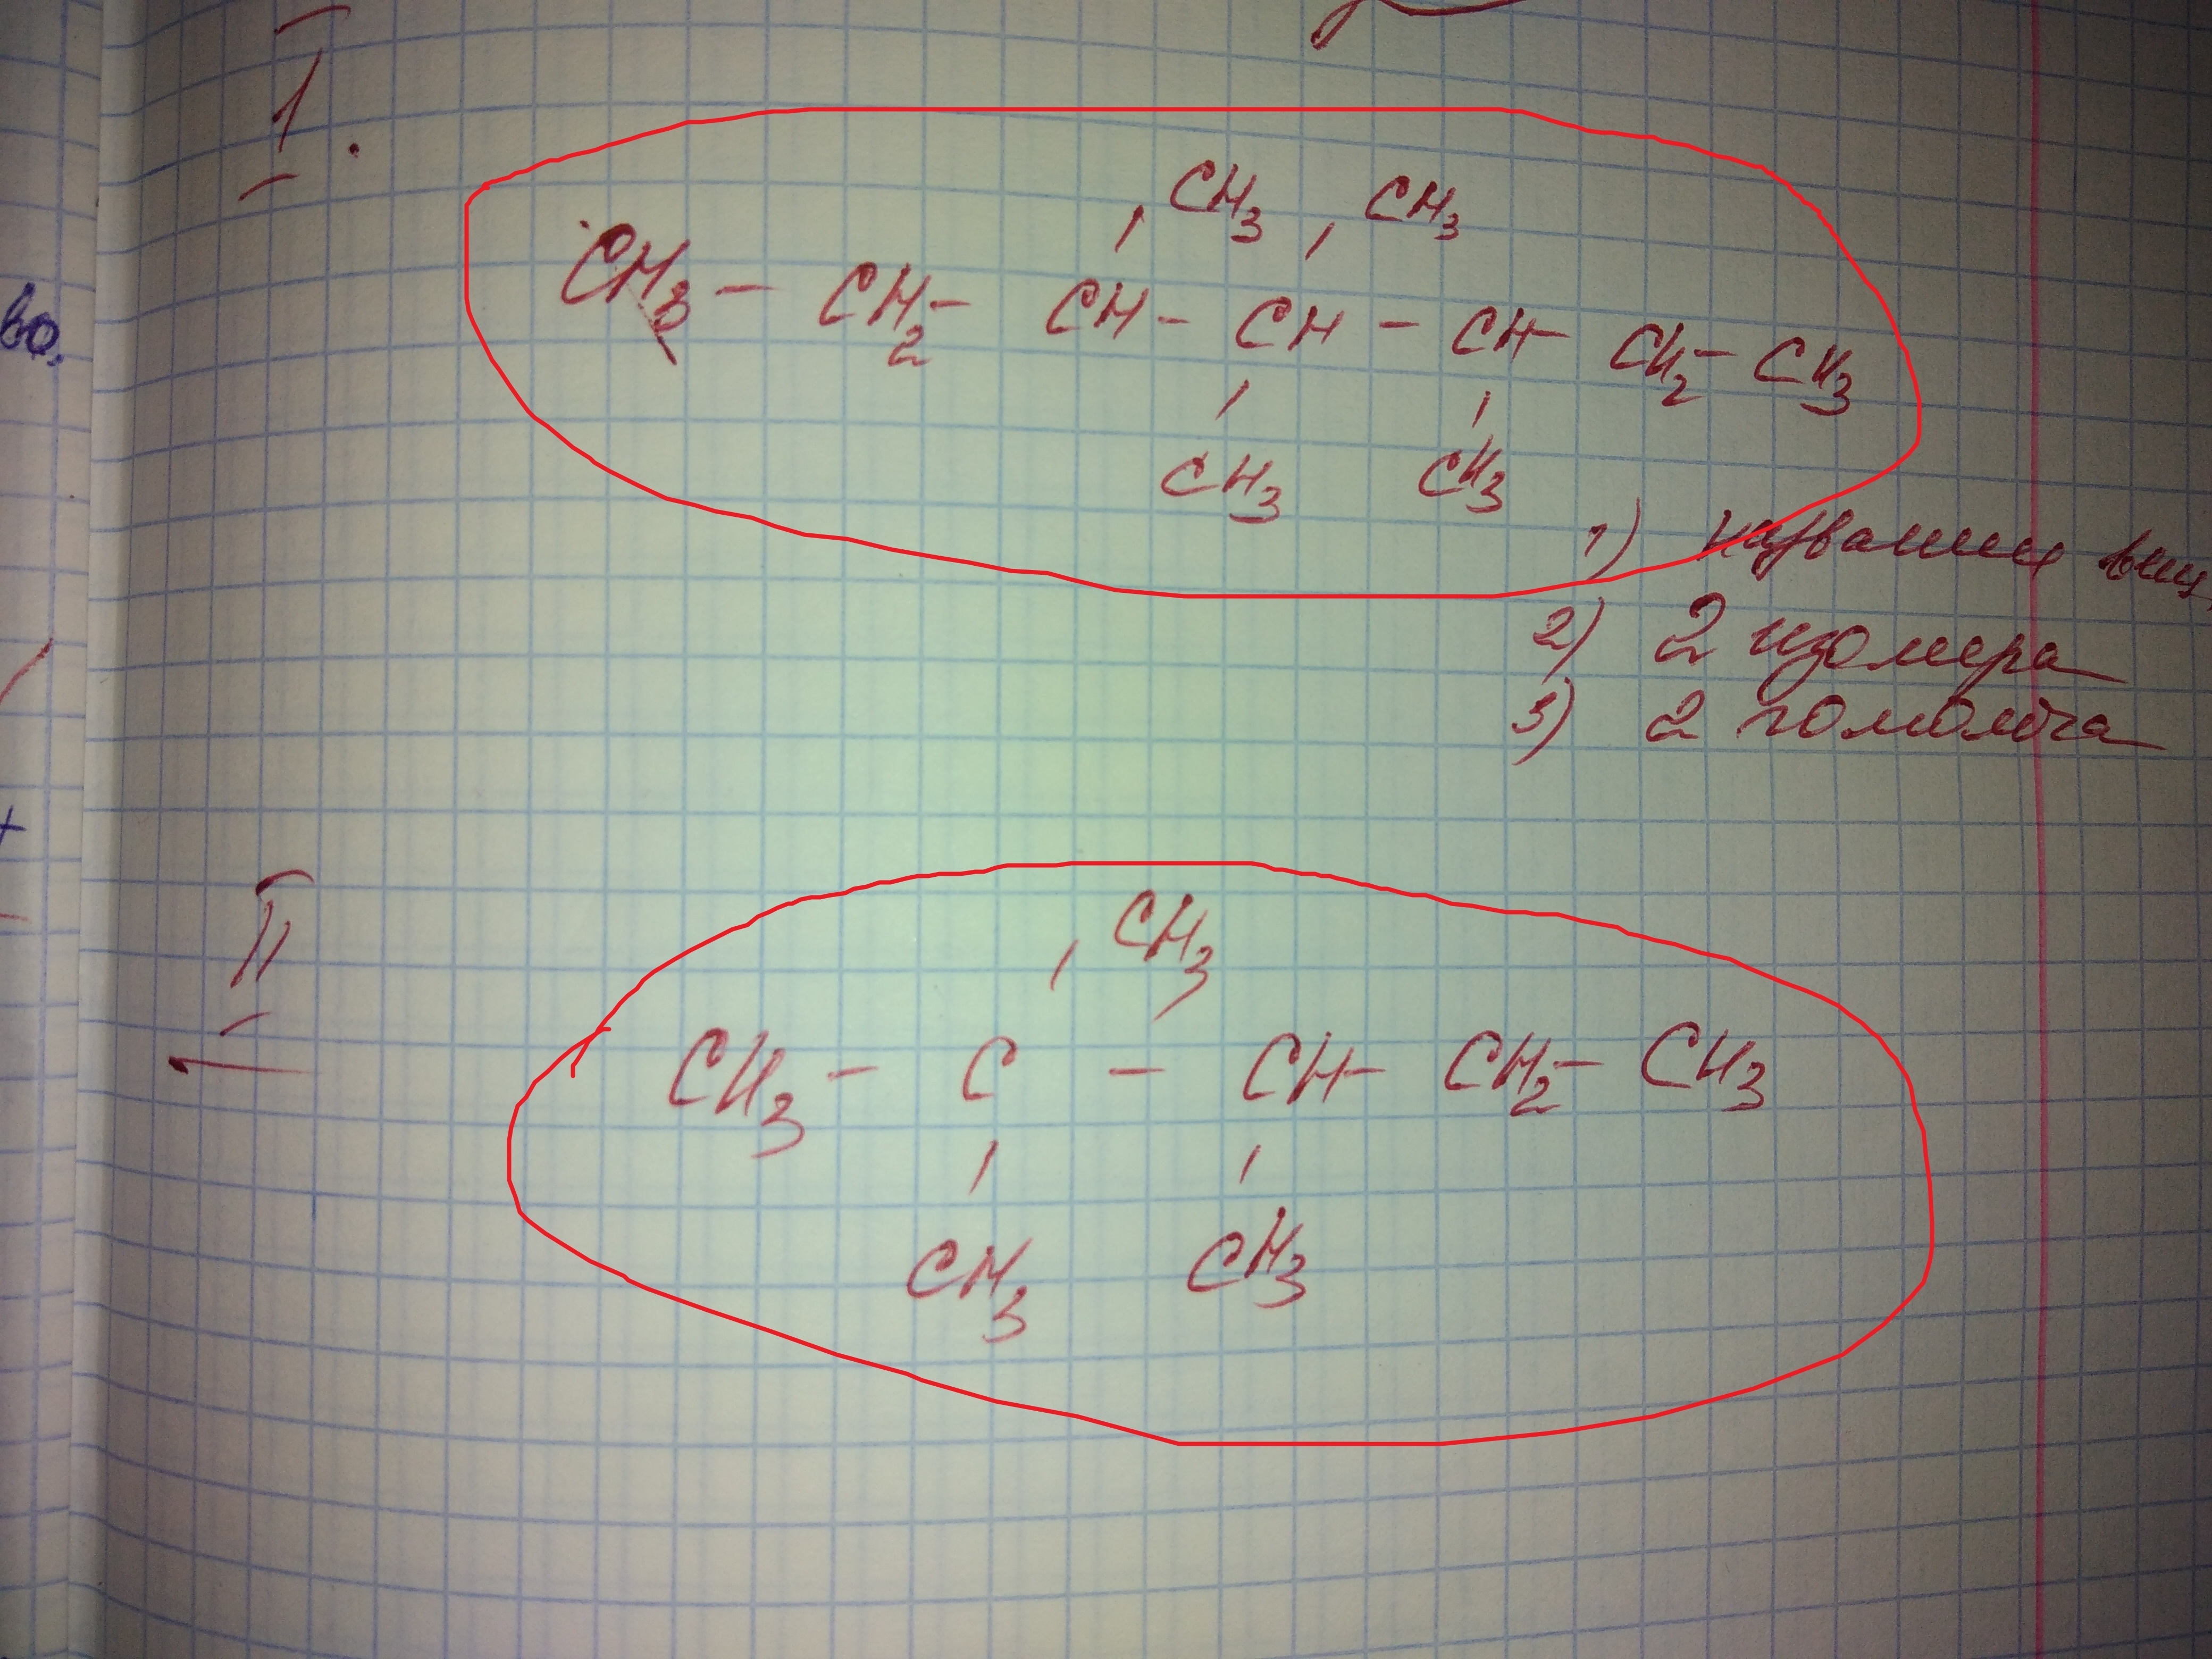 I.
CH3 CH3
CH3 - CH2 - CH - CH - CH - CH2 - CH3
CH3 CH3
во.
1) название вещ.
2) 2 изомера
3) 2 гомолога
II
CH3
CH3 - C - CH - CH2 - CH3
CH3 CH3